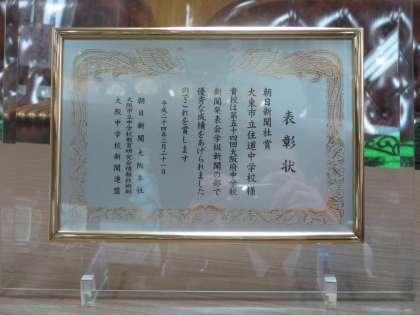 表彰状
朝日新聞社賞
大東市立住道中学校様
貴校は第五十四回大阪府中学校
新聞発表会学級新聞の部で
優秀な成績をあげられました
のでこれを賞します
平成二十四年二月二十一日
朝日新聞大阪本社
大阪市立中学校教育研究会情報技術部
大阪中学校新聞連盟